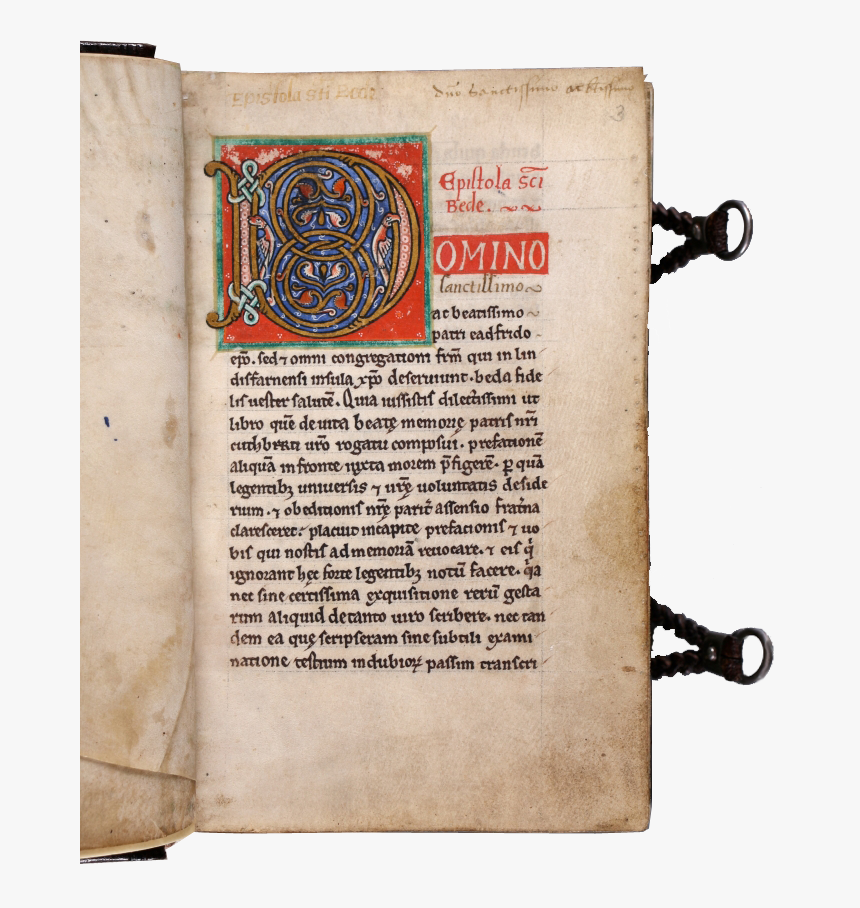 Epistola sci Bede
dño Sanctissimo ac btissimo
3
Epistola sci
Bede.
DOMINO
sanctissimo
ac beatissimo
patri eadfrido
ep̄o. sed ⁊ omni congregationi frm̄ qui in lin
disfarnensi insula xp̄o deseruiunt. beda fide
lis uester salutē. Quia iussistis dilectissimi ut
libro quē de uita beatę memorię patris nr̄i
cuthberti ur̄o rogatu composui. prefationē
aliquā in fronte iuxta morem p̄figerē. ꝑ quā
legentibꝫ uniuersis ⁊ ur̄ę uoluntatis deside
rium. ⁊ obeditionis nr̄ę parit̄ assensio frat̄na
claresceret. placuit in capite prefationis ⁊ uo
bis qui nostis ad memoriā reuocare. ⁊ eis q̇
ignorant hęc forte legentibꝫ notū facere. q̇a
nec sine certissima exquisitione rerū gesta
rum aliquid de tanto uiro scribere. nec tan
dem ea quę scripseram sine subtili exami
natione testium indubioꝝ passim transcri